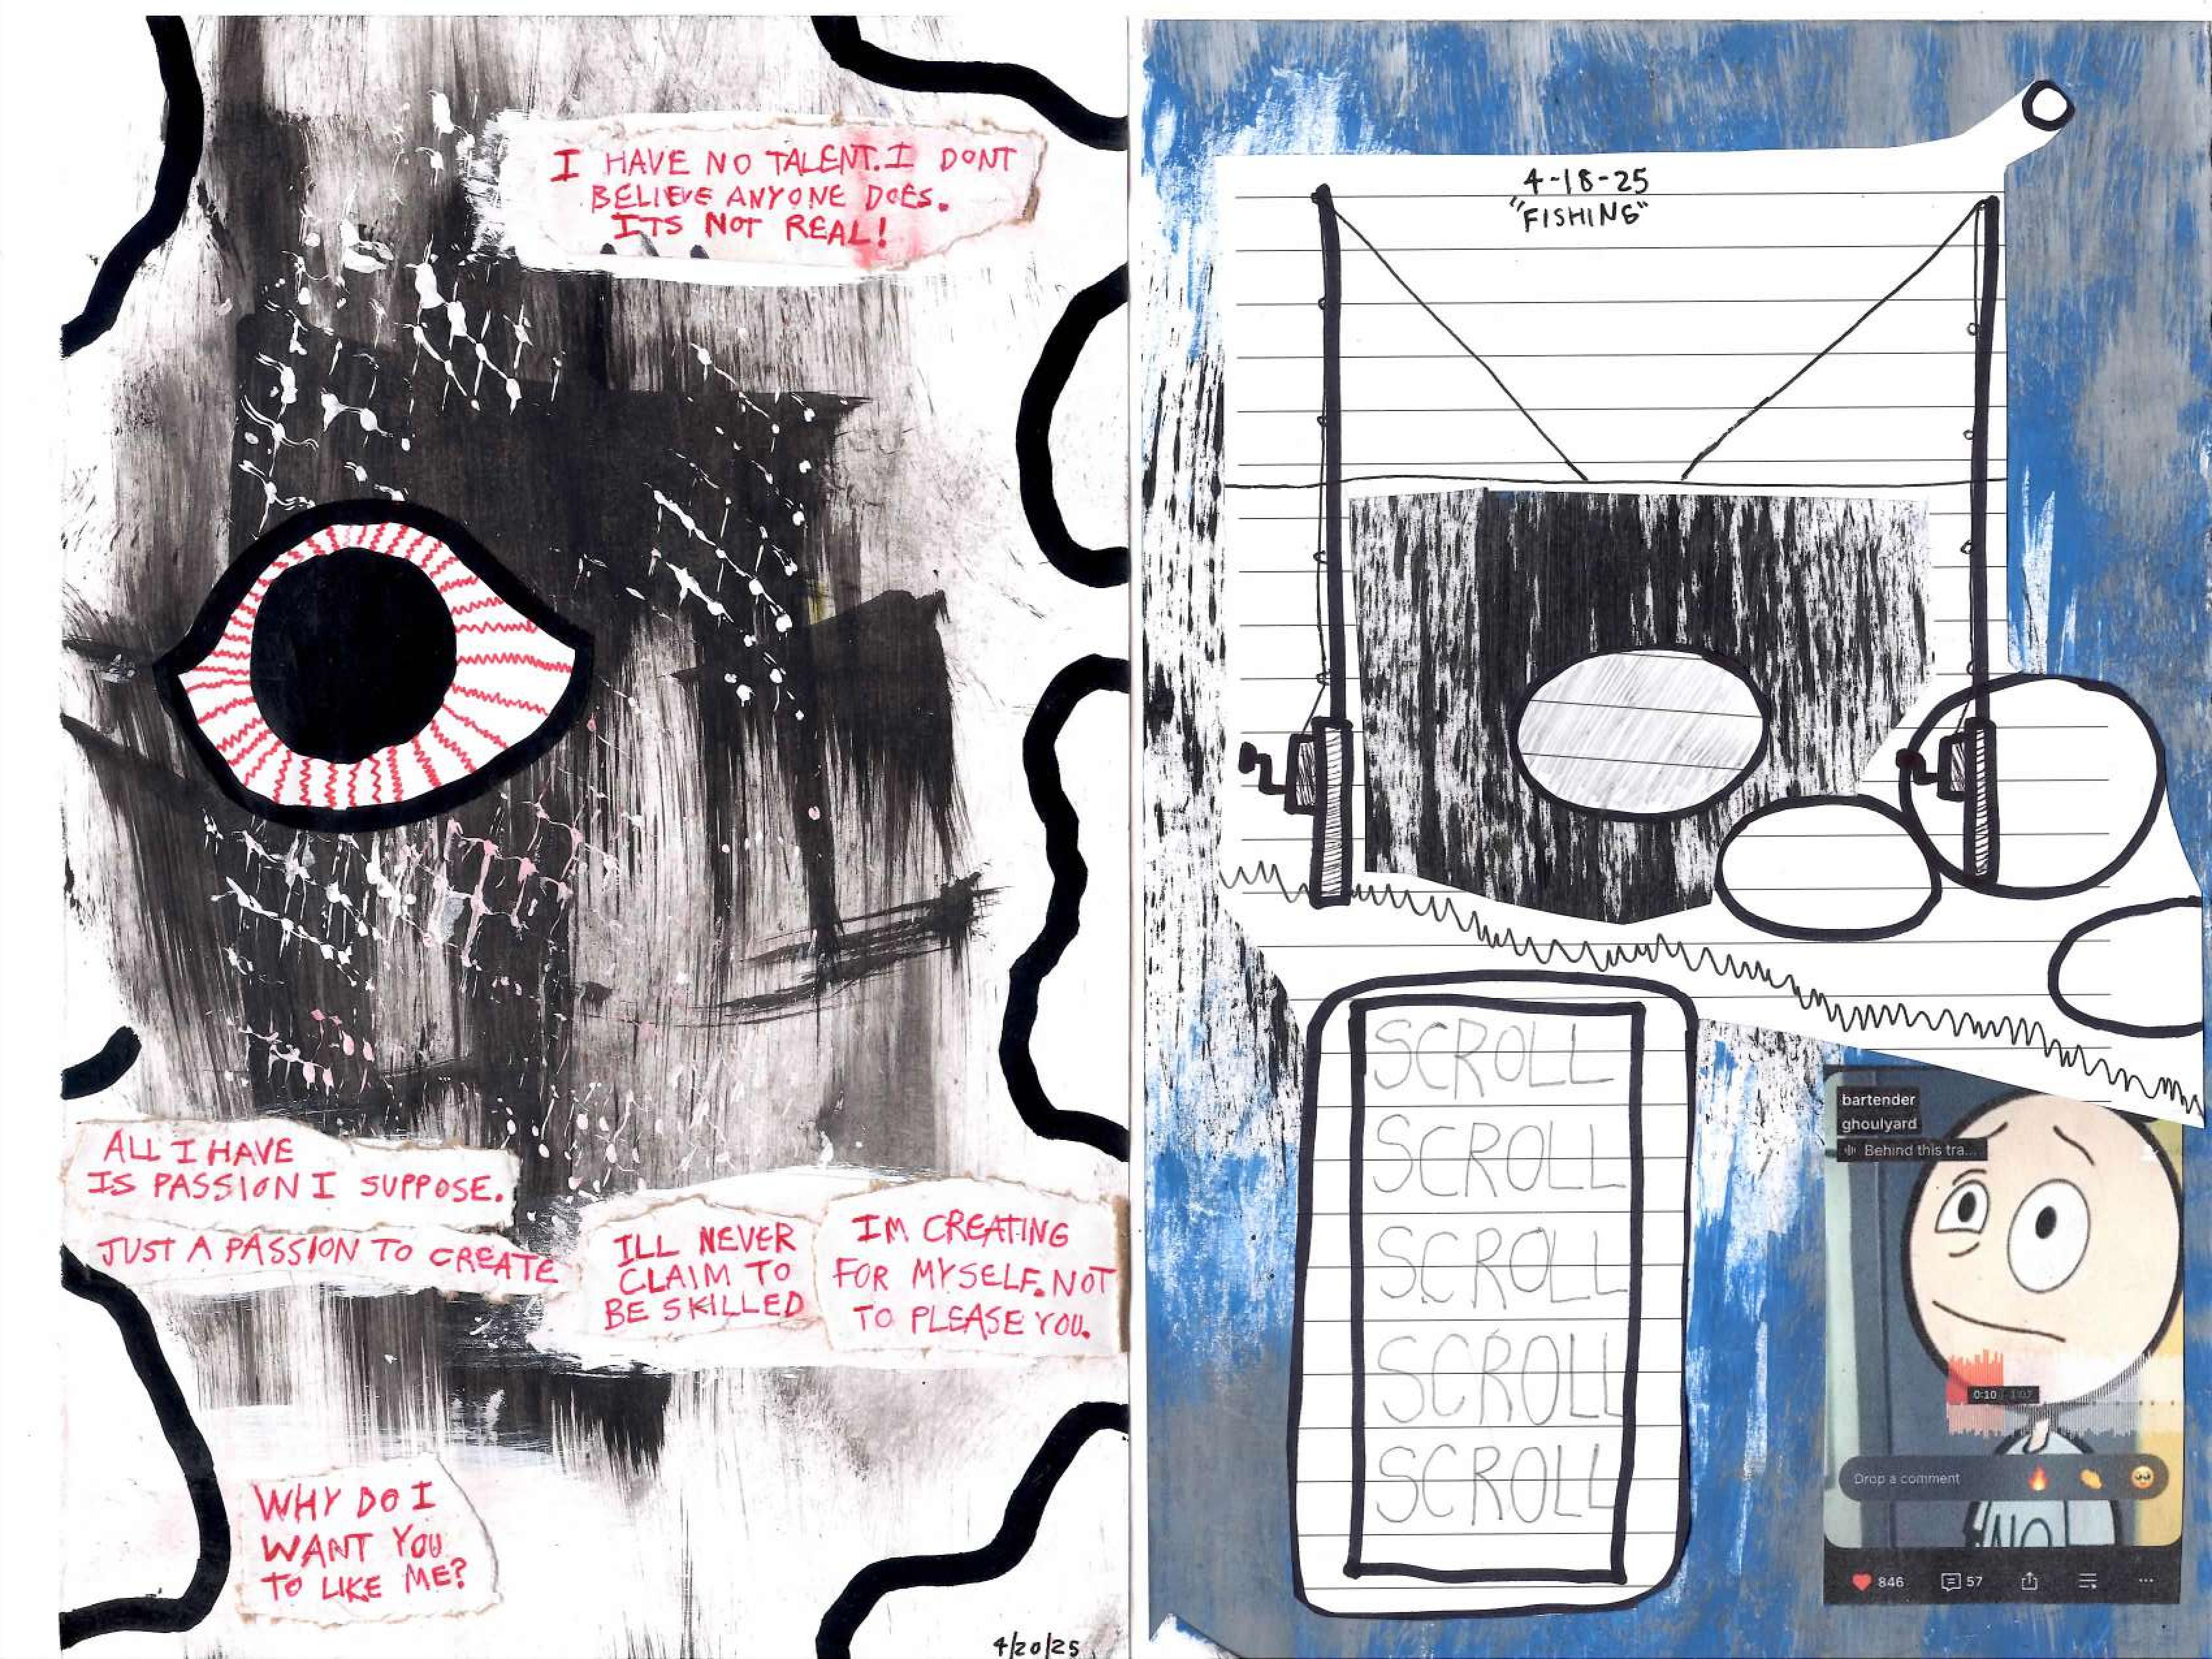 I HAVE NO TALENT. I DONT
BELIEVE ANYONE DOES.
ITS NOT REAL!
ALL I HAVE
IS PASSION I SUPPOSE.
JUST A PASSION TO CREATE
ILL NEVER
CLAIM TO
BE SKILLED
IM CREATING
FOR MYSELF. NOT
TO PLEASE YOU.
WHY DO I
WANT YOU
TO LIKE ME?
4/20/25
4-18-25
"FISHING"
SCROLL
SCROLL
SCROLL
SCROLL
SCROLL
bartender
ghoulyard
Behind this tra...
0:10
Drop a comment
NO
846
57